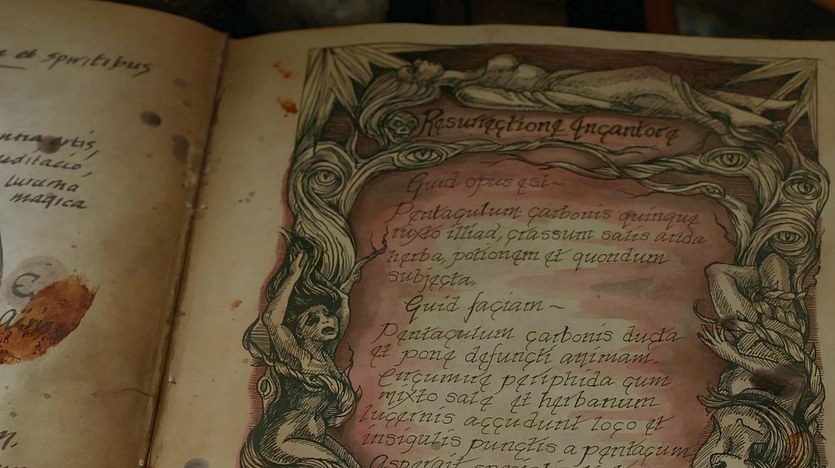 et spiritibus
artis,
magica
Resurrectione Incantore
Quid opus est~
Pentaculum carbonis quinque
mixto illiad, crassum salis arida
herba, potionem et quondum
subjecta.
Quid faciam~
Pentaculum carbonis ducta
et pone defuncti animam.
Encumire periphida cum
mixto sale et herbanum
lucernis accudunt loco et
insigulis punctis a pentacum